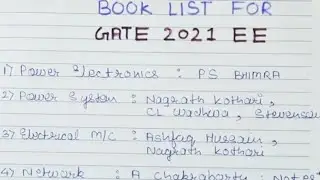 BOOK LIST FOR
GATE 2021 EE
1) Power Electronics : PS BHIMRA
2) Power System : Nagrath Kothari,
CL Wadhwa, Stevenson
3) Electrical M/C : Ashfaq Hussain,
Nagrath Kothari
4) Network : A Chakraborty : Not